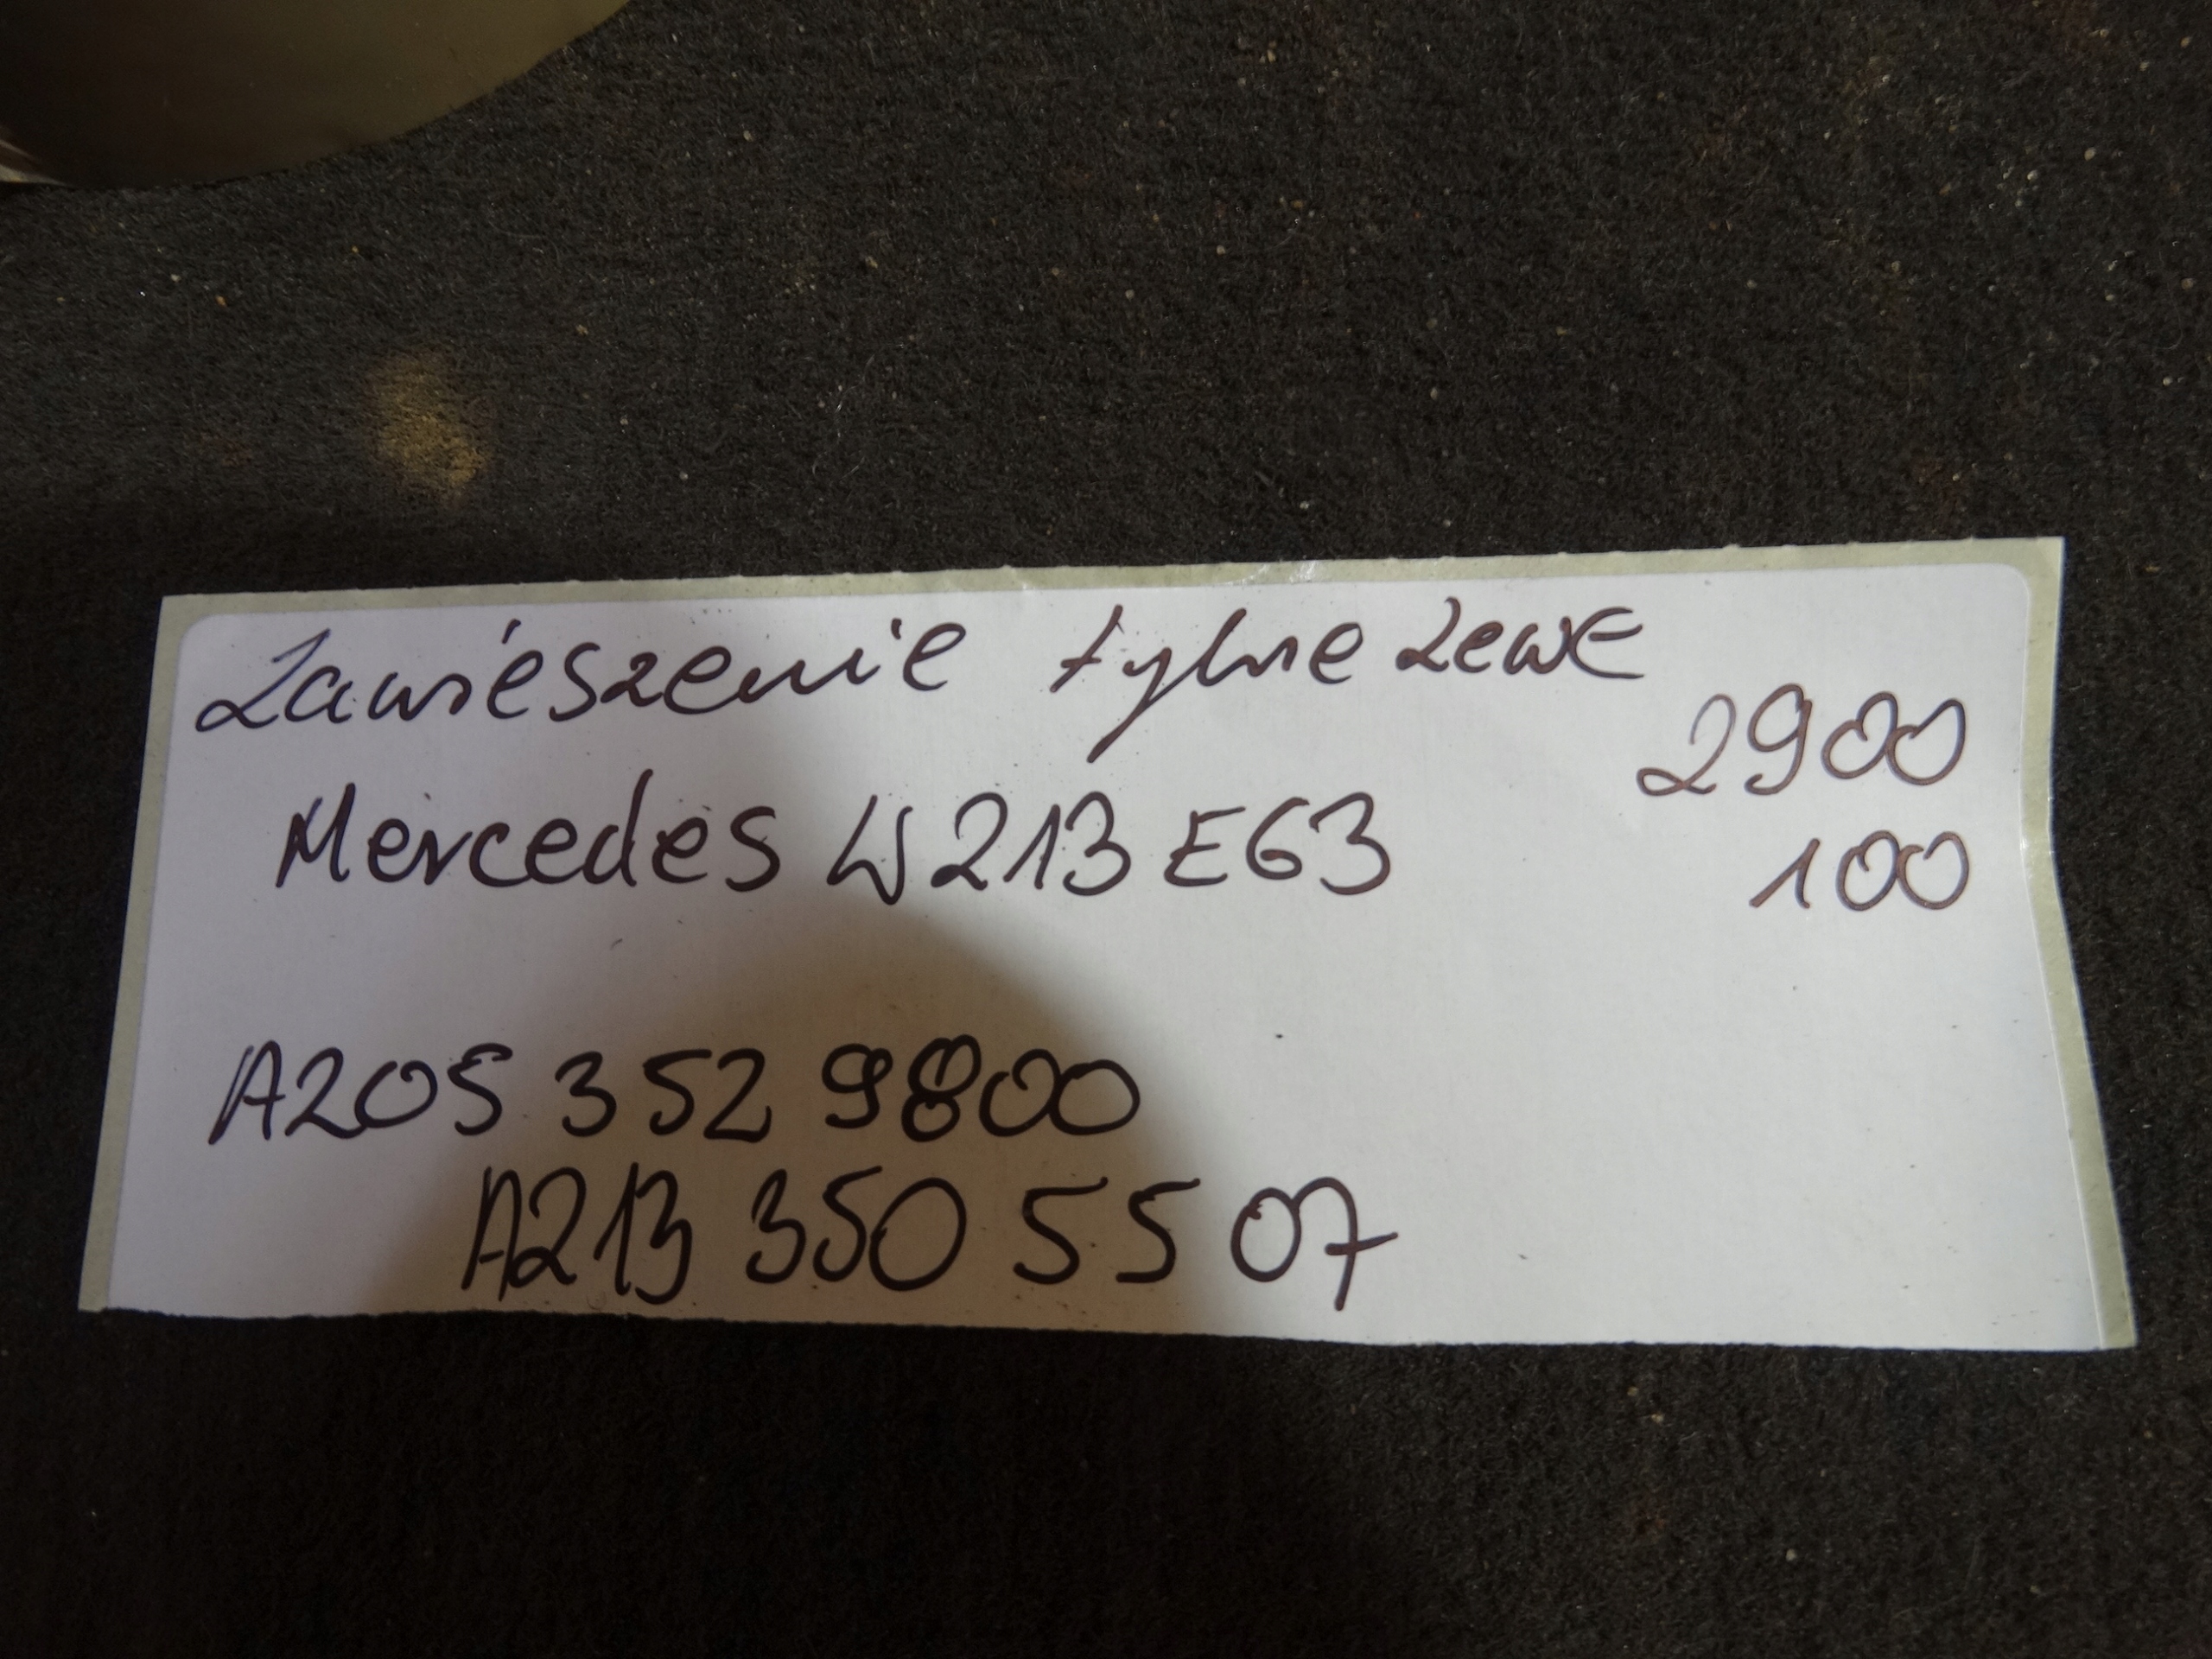 Zawieszenie tylne Lewe
2900
Mercedes W213 E63
100
A205 352 9800
A213 350 55 07